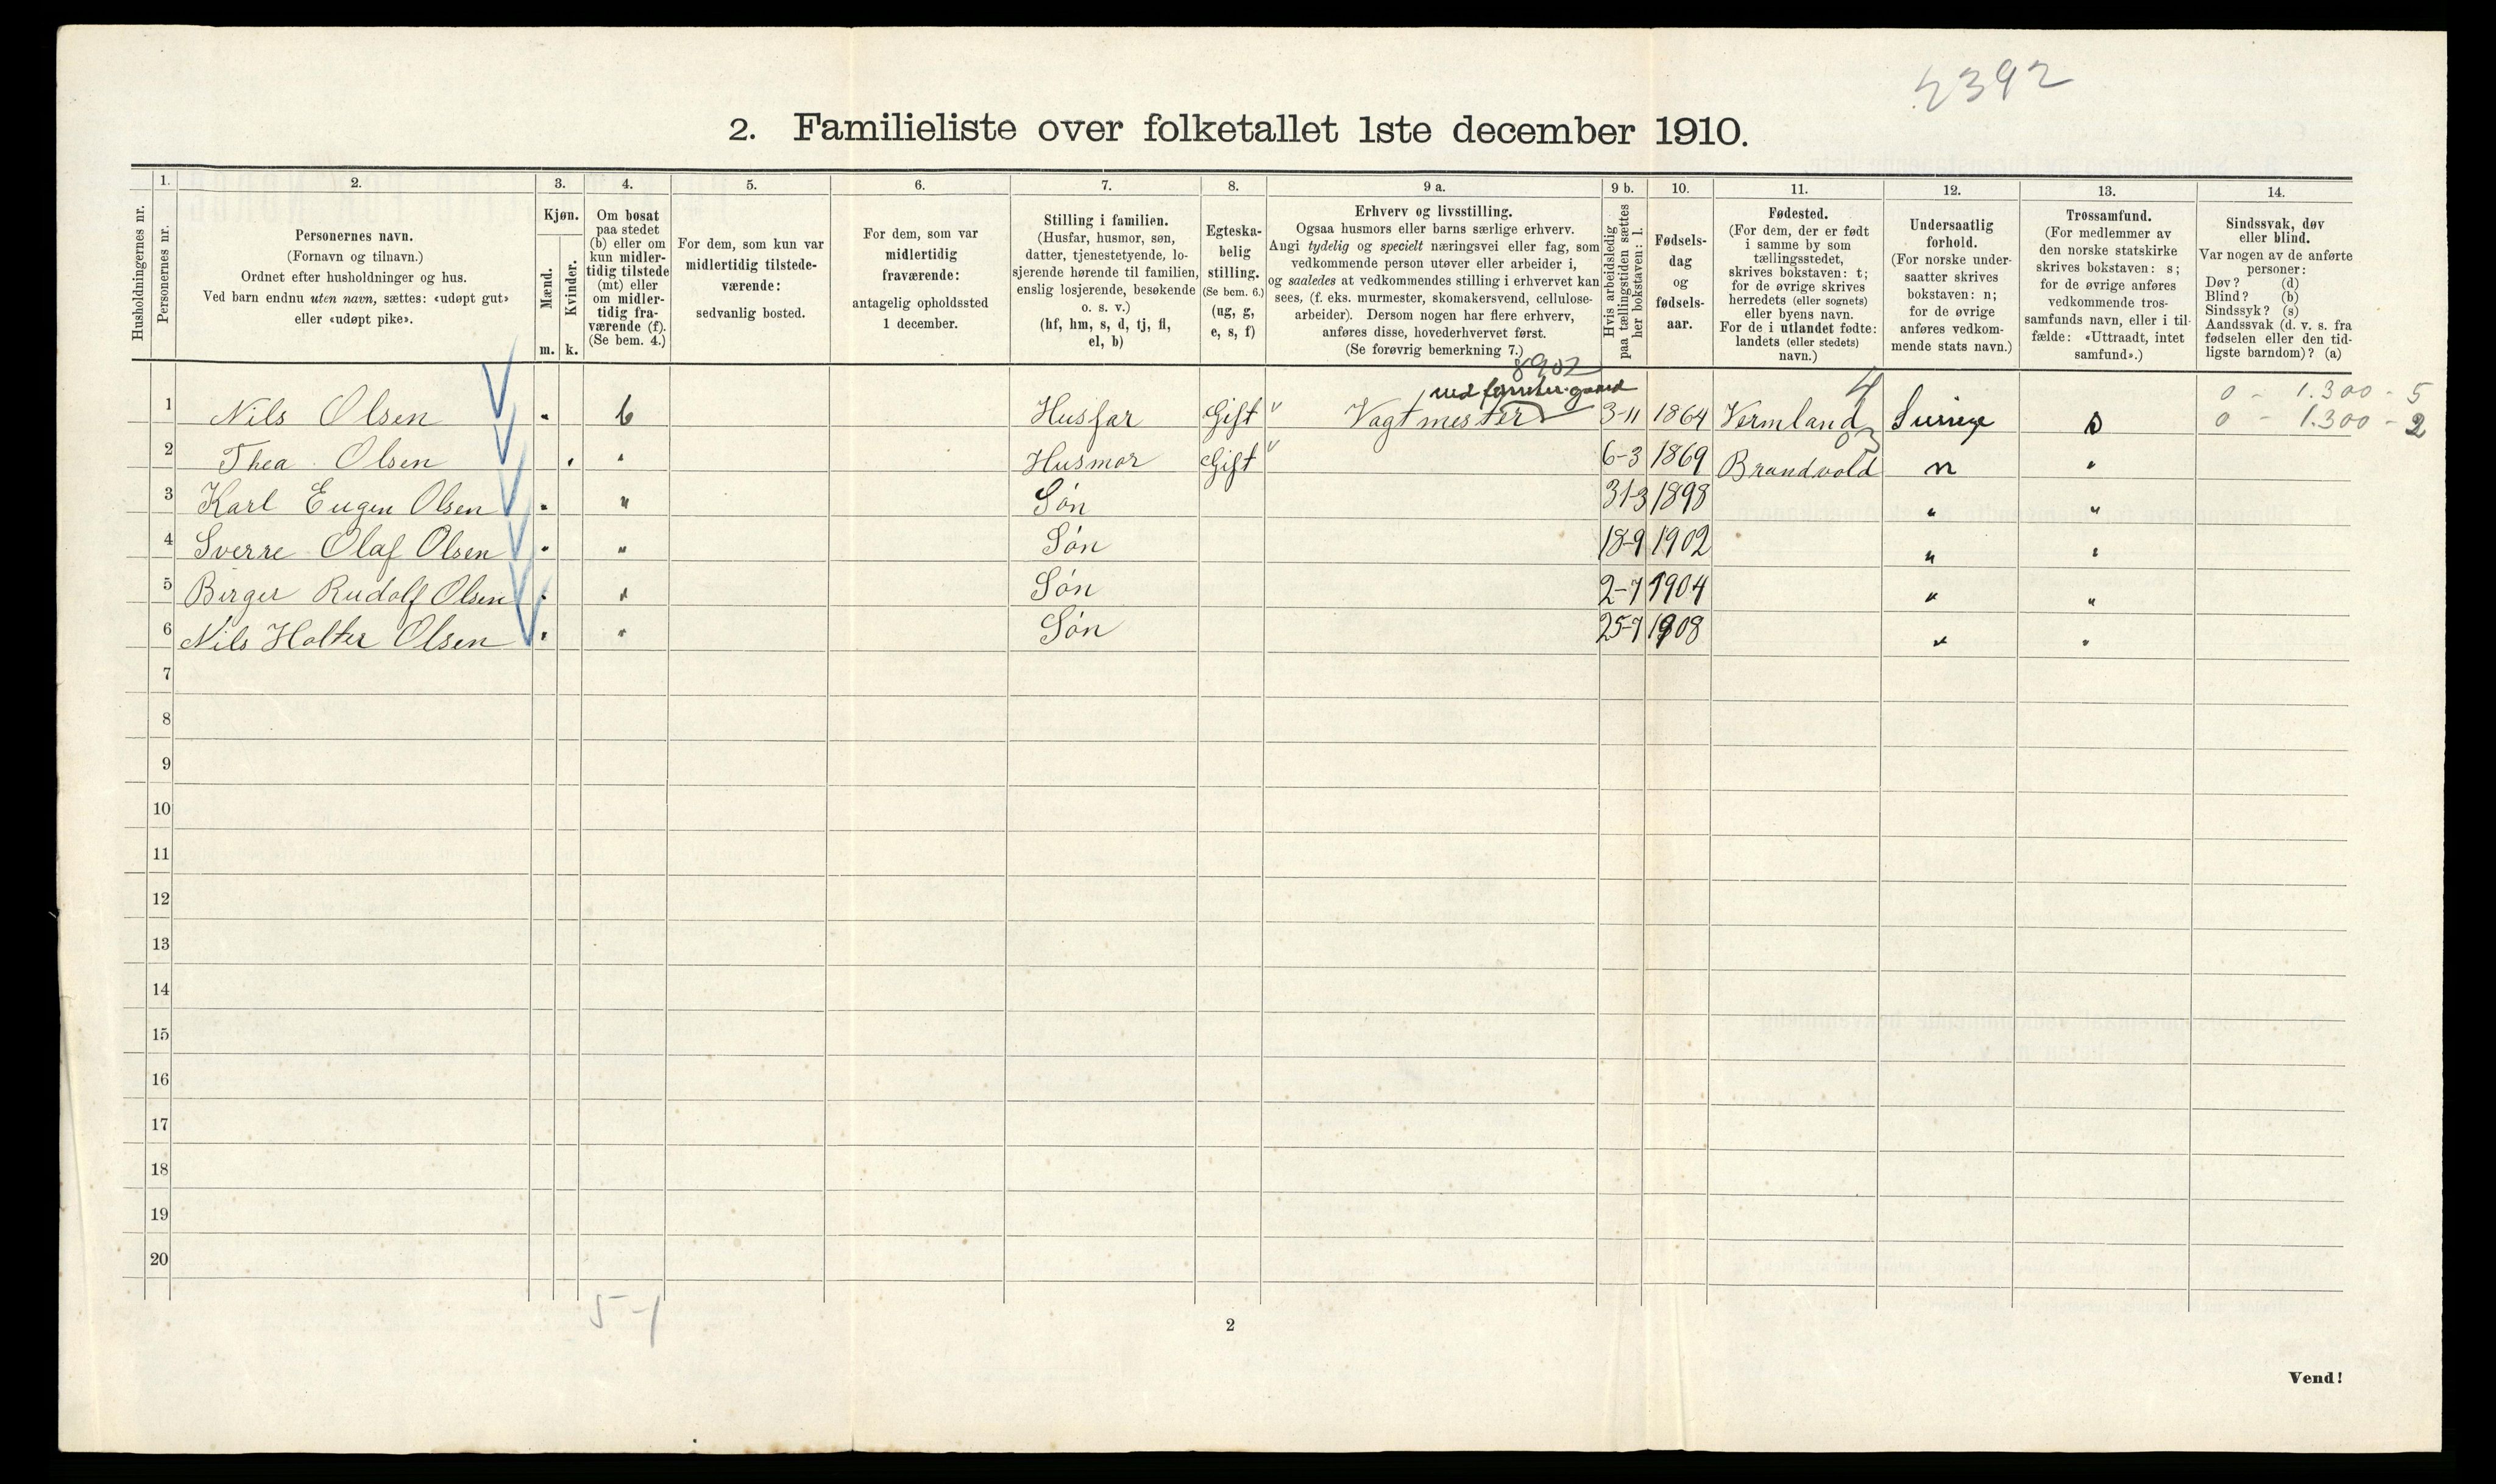 2392
2. Familieliste over folketallet 1ste december 1910.
Husholdningernes nr.
1.
Personernes nr.
2.
Personernes navn.
(Fornavn og tilnavn.)
Ordnet efter husholdninger og hus.
Ved barn endnu uten navn, sættes: «udøpt gut»
eller «udøpt pike».
3.
Kjøn.
Mænd.
Kvinder.
m. k.
4.
Om bosat
paa stedet
(b) eller om
kun midler-
tidig tilstede
(mt) eller
om midler-
tidig fra-
værende (f).
(Se bem. 4.)
5.
For dem, som kun var
midlertidig tilstede-
værende:
sedvanlig bosted.
6.
For dem, som var
midlertidig
fraværende:
antagelig opholdssted
1 december.
7.
Stilling i familien.
(Husfar, husmor, søn,
datter, tjenestetyende, lo-
sjerende hørende til familien,
enslig losjerende, besøkende
o. s. v.)
(hf, hm, s, d, tj, fl,
el, b)
8.
Egteska-
belig
stilling.
(Se bem. 6.)
(ug, g,
e, s, f)
9 a.
Erhverv og livsstilling.
Ogsaa husmors eller barns særlige erhverv.
Angi tydelig og specielt næringsvei eller fag, som
vedkommende person utøver eller arbeider i,
og saaledes at vedkommendes stilling i erhvervet kan
sees, (f. eks. murmester, skomakersvend, cellulose-
arbeider). Dersom nogen har flere erhverv,
anføres disse, hovederhvervet først.
(Se forøvrig bemerkning 7.)
9 b.
Hvis arbeidsledig
paa tællingstiden sættes
her bokstaven: l.
10.
Fødsels-
dag
og
fødsels-
aar.
11.
Fødested.
(For dem, der er født
i samme by som
tællingsstedet,
skrives bokstaven: t;
for de øvrige skrives
herredets (eller sognets)
eller byens navn.
For de i utlandet fødte:
landets (eller stedets)
navn.)
12.
Undersaatlig
forhold.
(For norske under-
saatter skrives
bokstaven: n;
for de øvrige
anføres vedkom-
mende stats navn.)
13.
Trossamfund.
(For medlemmer av
den norske statskirke
skrives bokstaven: s;
for de øvrige anføres
vedkommende tros-
samfunds navn, eller i til-
fælde: «Uttraadt, intet
samfund».)
14.
Sindssvak, døv
eller blind.
Var nogen av de anførte
personer:
Døv? (d)
Blind? (b)
Sindssyk? (s)
Aandssvak (d. v. s. fra
fødselen eller den tid-
ligste barndom)? (a)
8902
4 0 - 1.300 - 5
1 Nils Olsen " b Husfar Gift " Vagtmester 3-11 1864 Vermland Sverige s 0 - 1.300 - 2
03
2 Thea Olsen " " Husmor Gift " 6-3 1869 Brandvold n "
3 Karl Eugen Olsen " " Søn 31-3 1898 " "
4 Sverre Olaf Olsen " " Søn 18-9 1902 " "
5 Birger Rudolf Olsen " " Søn 2-7 1904 " "
6 Nils Holter Olsen " " Søn 25-7 1908 " "
7
8
9
10
11
12
13
14
15
16
17
18
19
20
5-1
2
Vend!